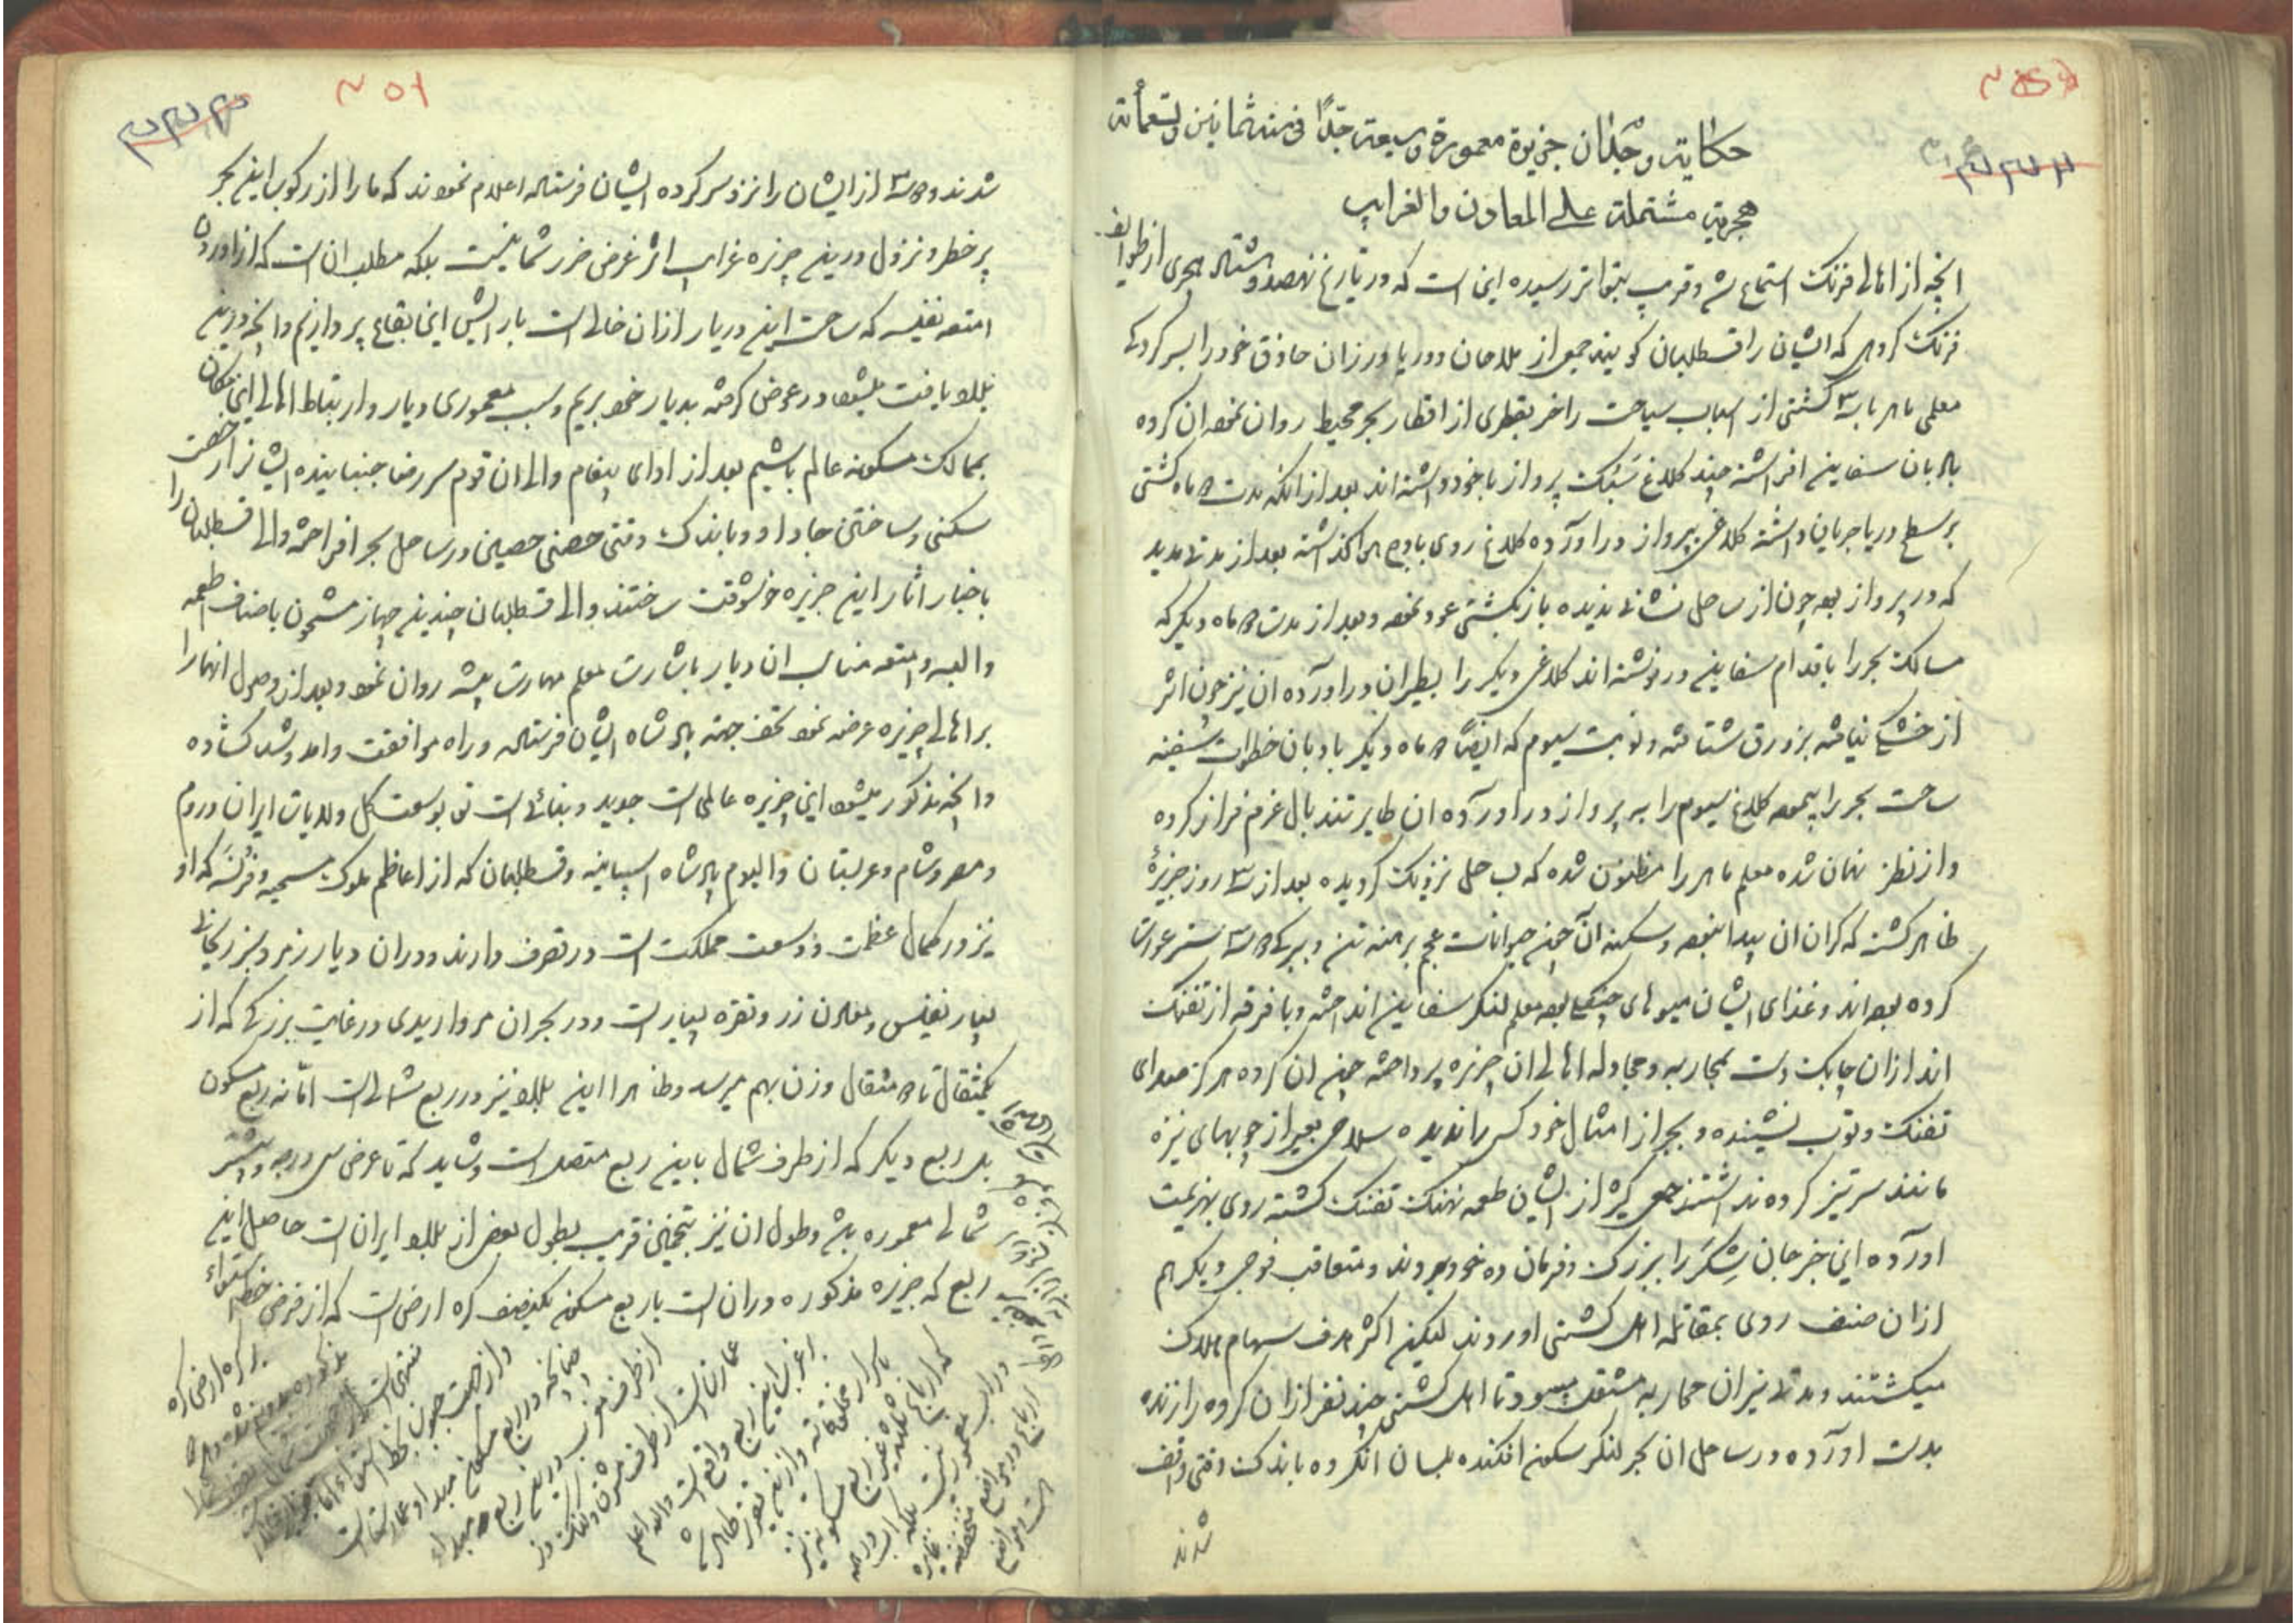 حکایة وجدان جزیرة معمورة وسیعة جدًا فی سنه ثمانین و تسعمأته
هجریة مشتملة علی المعادن والغرایب
انچه از اهالی فرنک استماع شد و قریب بتواتر رسیده این است که در تاریخ نهصد و هشتاد هجری از طوایف
فرنک کروهی که ایشان را قسطلیان کویند جمعی از ملاحان و دریا ورزان حاذق خود را بسر کردکی
معلمی ماهر با سه کشتی از اسباب سیاحت زاخر بقطری از اقطار بحر محیط روان نموده ان کروه
بادبان سفاین افراشته چند کلاغ سَبُک پرواز با خود داشته اند بعد از انکه مدت ماه کشتی
بر سطح دریا جریان داشته کلاغی بپرواز در اورده کلاغ روی باوج هوا کذاشته بعد از مدتی مدید
که در پرواز بوده چون از ساحل نشانی ندیده باز بکشتی عود نموده و بعد از مدت ماه دیکر که
مسالک بحر را باقدام سفاین در نوشته اند کلاغی دیکر را بطیران در اورده ان نیز چون اثر
از خشکی نیافته بزورق شتافته و نوبت سیوم که ایضًا ماه دیکر بادبان خطرات سفینه
ساحت بحر را پیموده کلاغ سیوم را به پرواز در اورده ان طایر تند بال عزم فراز کرده
و از نظر نهان شده معلم ماهر را مظنون شده که بساحل نزدیک کردیده بعد از سه روز جزیرهٔ
ظاهر کشته که کران ان پیدا نبوده و سکنه آن چون حیوانات عجم برهنه تن و ببرکی ستر عورت
کرده بوده اند و غذای ایشان میوهای جنکلی بوده معلم لنکر سفاین انداخته و با فرقه از تفنک
اندازان چابک دست بمحاربه و مجادله اهالی ان جزیره پرداخته چون ان کروه هرکز صدای
تفنک و توپ نشنیده و بجز از امثال خود کسی را ندیده سلاحی بغیر از چوبهای نیزه
مانند سر تیز کرده نداشتند جمعی کثیر از ایشان طعمه نهنک تفنک کشته روی بهزیمت
اورده این خبر جان شِکَر را ببزرک و فرمان ده خود بردند و متعاقب فوجی دیکر هم
ازان صنف روی بمقاتله اهل کشتی اوردند لیکن اکثر هدف سهام هلاک
میکشتند و مدتی نیران محاربه مشتعل میبود تا اهل کشتی چند نفر ازان کروه را زنده
بدست اورده در ساحل ان بحر لنکر سکون افکنده بلسان انکروه باندک وقتی واقف
شدند
۲۵۱
شدند و از ایشان را نزد سرکرده ایشان فرستاده اعلام نمودند که ما را از رکوب این بحر
پر خطر و نزول درین جزیره غرایب اثر غرض ضرر شما نیست بلکه مطلب ان است که از اوردن
امتعه نفیسه که ساحت این دیار ازان خالی است بارایش این بقاع پردازیم و انچه درین
بلاد یافت میشود در عوض کرفته بدیار خود بریم و سبب معموری دیار و ارتباط اهالی این مکان
بممالک مسکونه عالم باشیم بعد از ادای پیغام والی ان قوم سر رضا جنبانیده ایشانرا رخصت
سکنی و ساختن جا داد و باندک وقتی حصنی حصین در ساحل بحر افراخته والی قسطلیان را
باخبار اثار این جزیره خوشوقت ساختند والی قسطلیان چندین جهاز مشحون باصناف اطعمه
و البسه و امتعه مناسب ان دیار باشارت معلم مهارت پیشه روان نمود و بعد از وصول انهارا
بر اهالی جزیره عرضه نموده تحف جهته پادشاه ایشان فرستاده و راه موافقت و امد و شد کشاده
و انچه مذکور میشود این جزیره عالمی است جدید و بنائی است نو بوسعت کل ولایات ایران و روم
و مصر و شام و عربستان و الیوم پادشاه اسپانیه و قسطلیان که از اعاظم ملوک مسیحیه و فرنسَه که او
نیز در کمال عظمت و وسعت مملکت است در تصرف دارند و دران دیار زمرد سبز ریحانی
بسیار نفیس و معادن زر و نقره بسیار است و در بحران مرواریدی در غایت بزرکی که از
یکمثقال تا مثقال وزن بهم میرسد و ظاهرا این بلاد نیز در ربع شمالی است امّا نه ربع مسکون
بل ربع دیکر که از طرف شمال باین ربع متصل است و شاید که تا عرض سی درجه و بیشتر
شمالی معموره باشد و طول ان نیز بتخمین قریب بطول بعض از بلاد ایران است حاصل این
ربع که جزیره مذکوره دران است با ربع مسکون یکنصف کره ارض است که از فرض خط استواء
بر کره ارض کره
مذکوره بدو نیم شده
منتهی است
و از جهت جنوب بخط استواء
چنانچه در ربع مسکون مبداء عمارت است
از طرف مغرب درین ربع مبداء
عمارت است از طرف مشرق و لنک دز
اغرب این ربع واقع است والله اعلم
باسرار مخلوقاته و ازین تقریر ظاهر شد
که ارباع ثلثه غیر ربع مسکون نیز
دران معموره نیست بلکه اب در همه
ارباع در مواضع منخفضه
است و مواضع